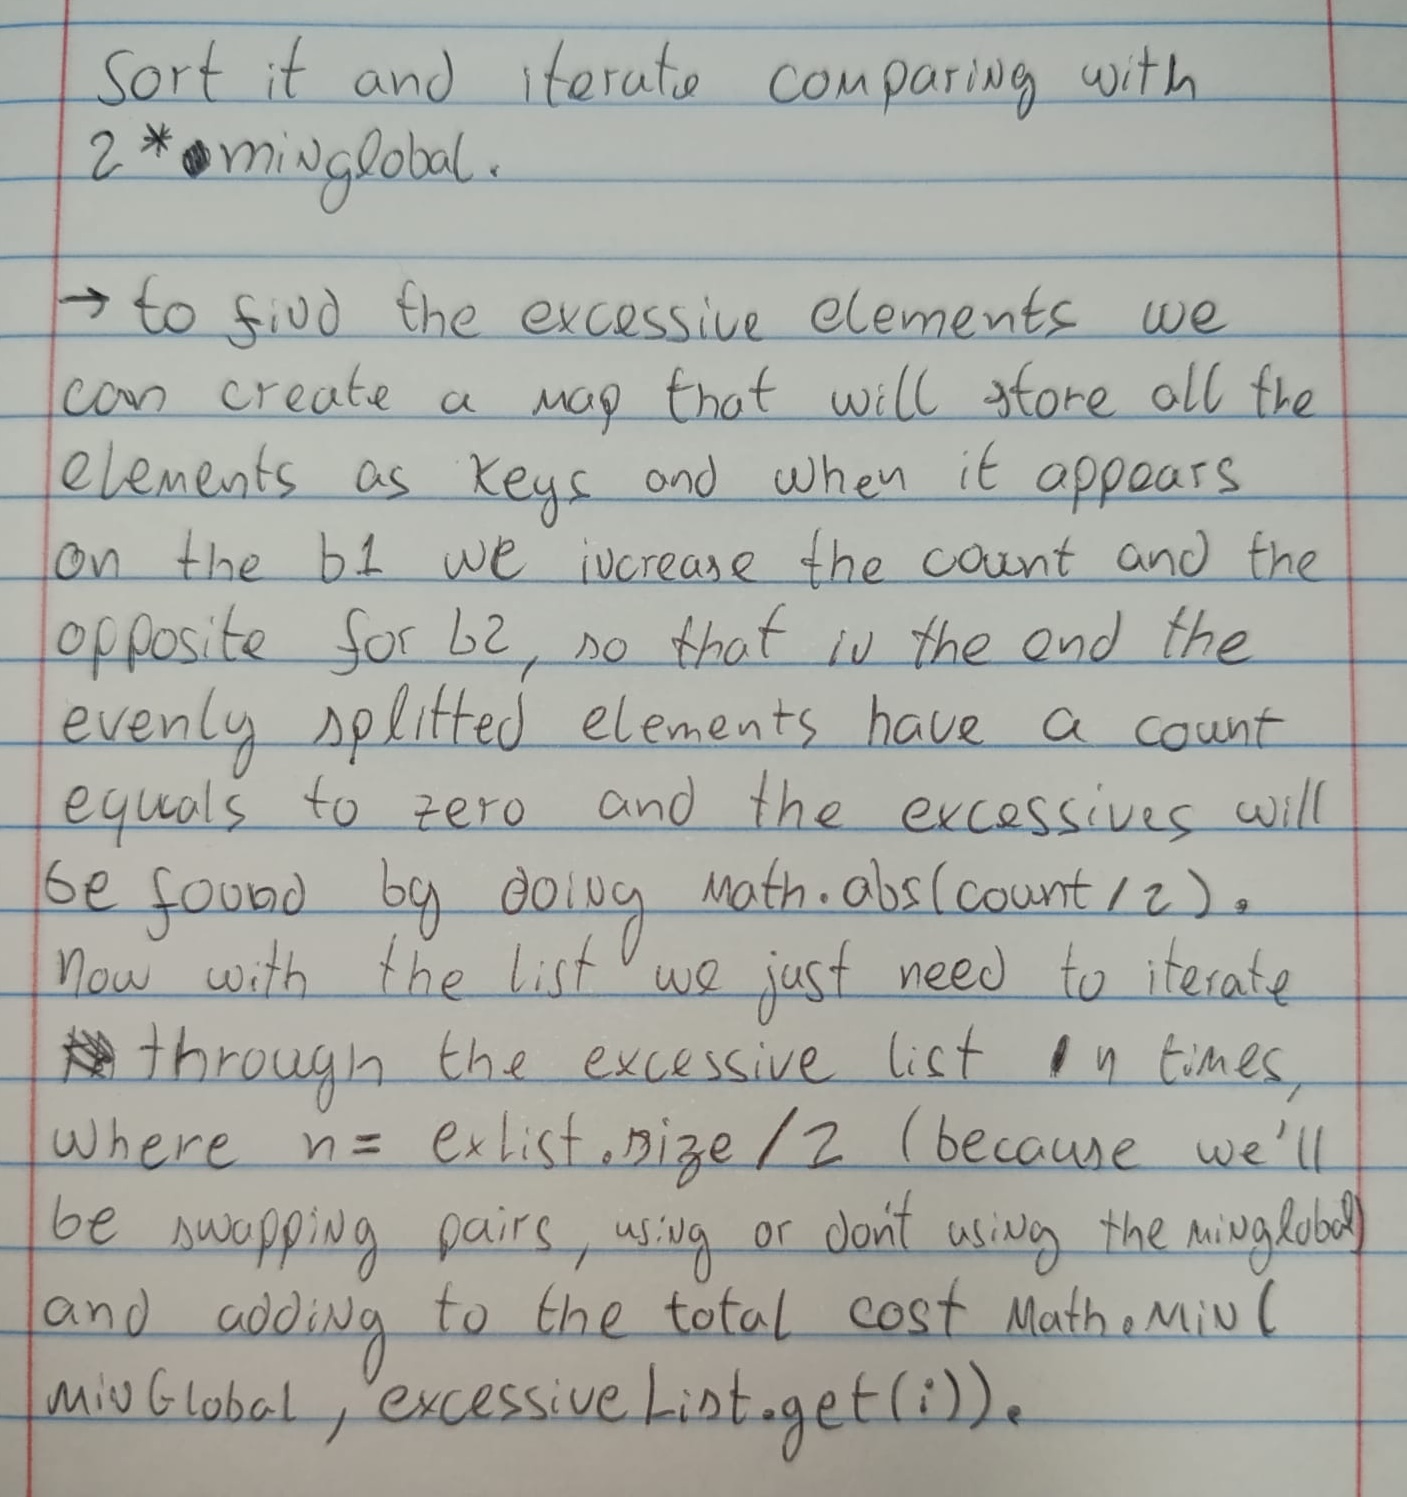 Sort it and iterate comparing with
2 * minglobal.
→ to find the excessive elements we
can create a map that will store all the
elements as keys and when it appears
on the b1 we increase the count and the
opposite for b2, so that in the end the
evenly splitted elements have a count
equals to zero and the excessives will
be found by doing Math.abs(count/2).
Now with the list we just need to iterate
through the excessive list n times,
where n = exlist.size/2 (because we'll
be swapping pairs, using or don't using the minglobal)
and adding to the total cost Math.Min(
minGlobal, excessiveList.get(i)).